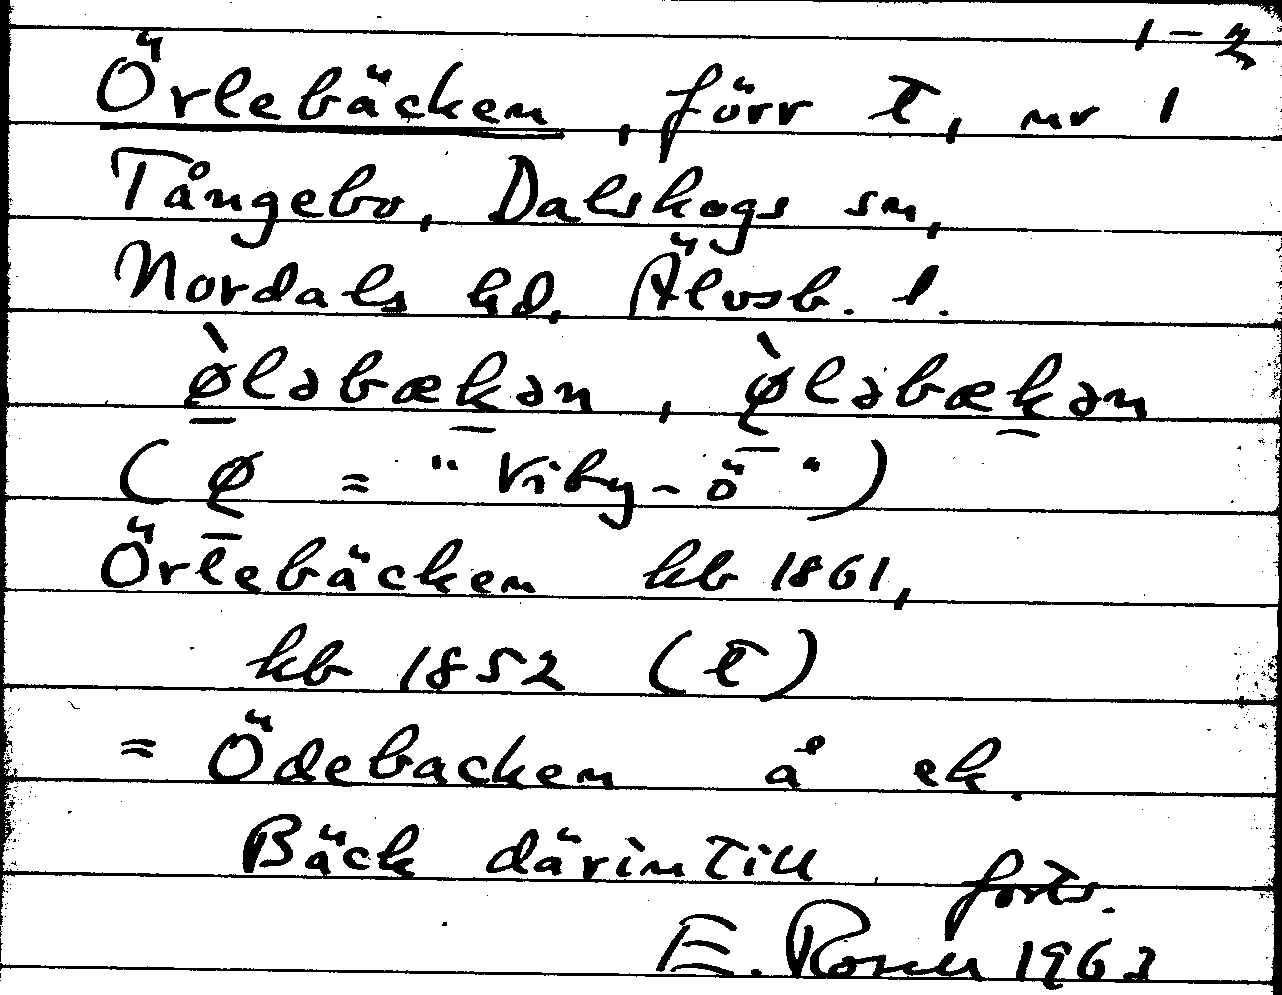 1-2
Örlebäcken, förr t, nr 1
Tångebo, Dalskogs sn,
Nordals hd, Älvsb. l.
ø̀ləbækən, ø̨̀ləbækən
(ø̨ = "Viby-ö")
Örlebäcken kb 1861,
kb 1852 (t)
= Ödebacken å ek.
Bäck därintill
forts.
E. Rosell 1963